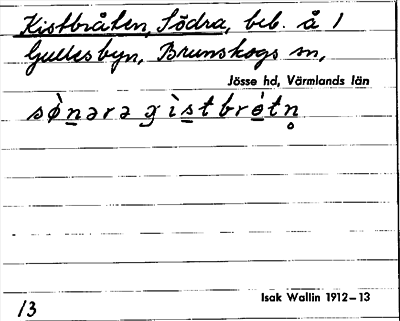 Kistbråten, Södra, beb. å 1
Gullesbyn, Brunskogs sn,
Jösse hd, Värmlands län
sø̀nara ɣìstbrétn̥
Isak Wallin 1912–13
13